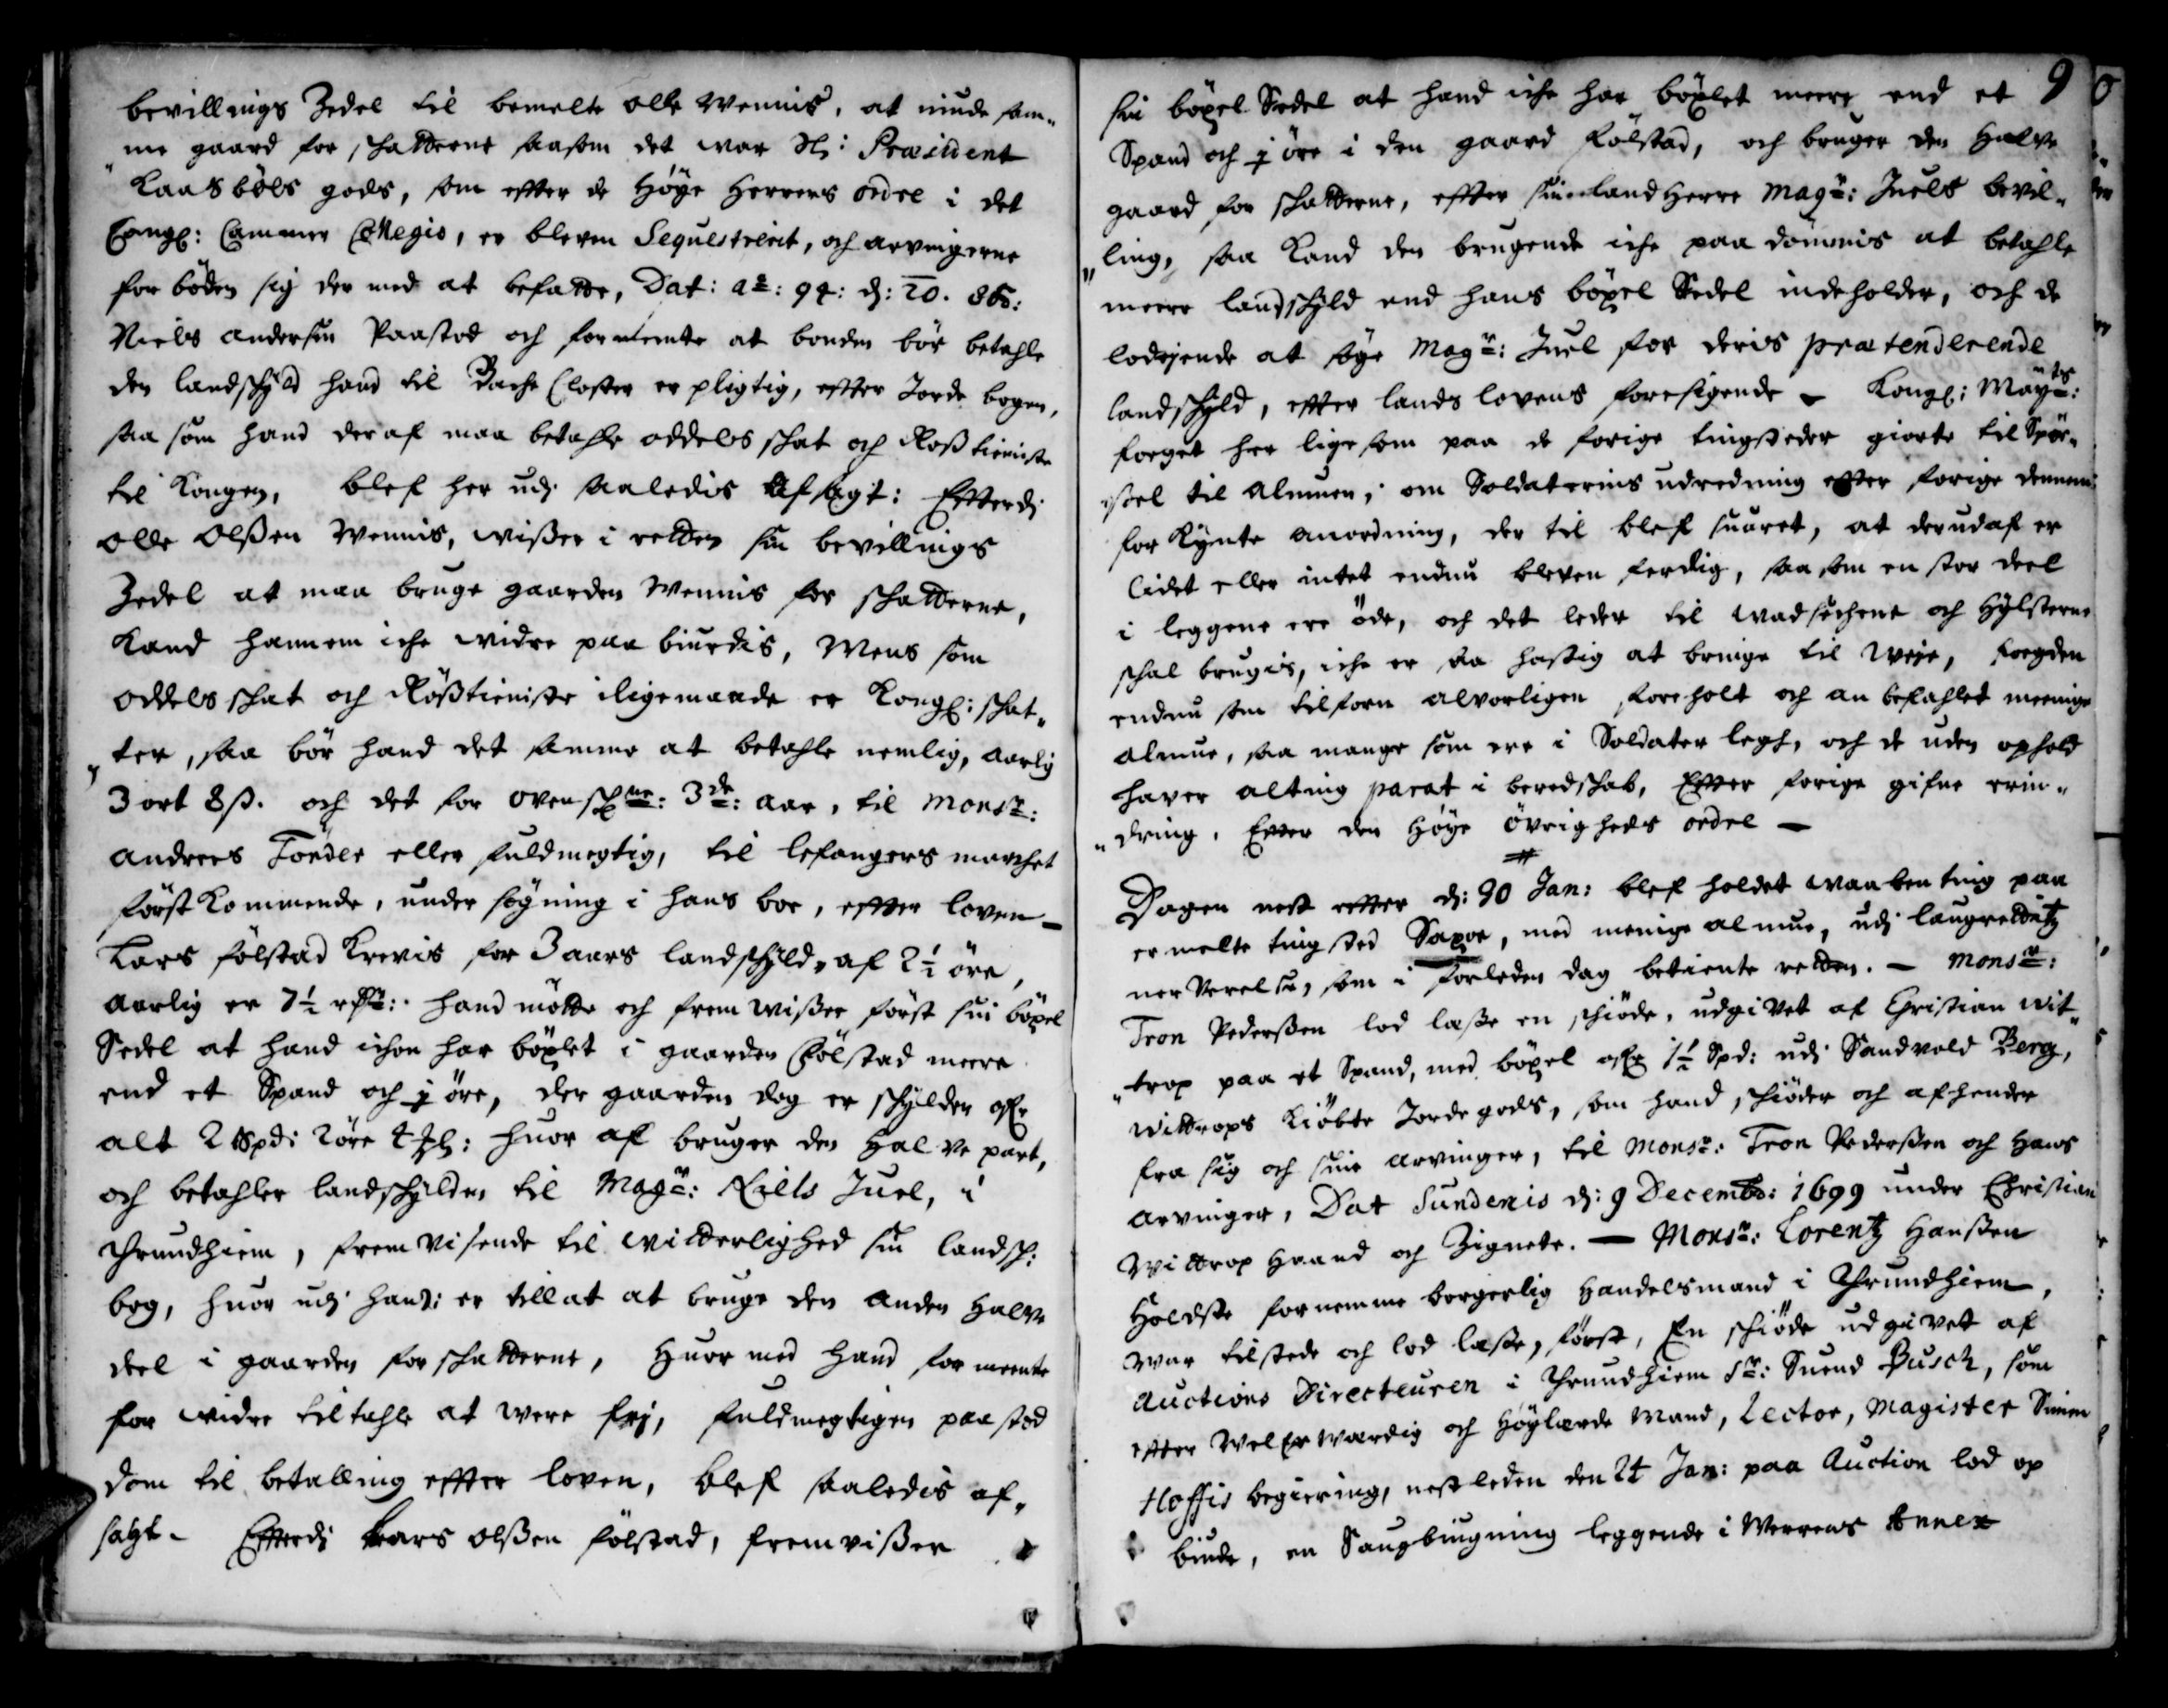 bevillings Zedel til bemelte olle Wennis, at niude sam„
„me gaard for schatterne saasom det war Sl: Præsident
Kaasbøls gods, som effter de Høye Herrers ordre i det
Kongl: Cammer Collegio, er bleven Sequestrerit, och arvingerne
forböden sig der med at befatte, Dat: ao: 94: dj: 20. 8b:
Niels andersen Paastod och formeente at bonden bör betahle
den landschyld hand til Bache Closter er pligtig, effter Jordebogen,
saa som hand deraf maa betahle oddels schat och Rostieniste
til Kongen, blef her udj saaledis afsagt: Effterdj
olle olssen Wennis, wisser i retten sin bevillings
Zedel at maa bruge gaarden Wennis for schatterne,
Kand hannem iche widre paa biurdis, Mens som
oddels schat och Rosstieniste iligemaade er Kongl: schat„
„ter, saa bör hand det samme at betahle nemlig, aarlig
3 ort 8 s. och det for ovenschne: 3de: aar, til Monsr:
andreas Tönder eller fuldmegtig, til lefangers marchet
först Kommende, under sögning i hans boe, effter loven —
Lars fölstad Krevis for 3 aars landschyld, af 2½ öre,
aarlig er 7½ hand mötte och frem wisser först sin böxel
Sedel at hand ichon har böxlet i gaarden fölstad meere
end et Spand och j öre, der gaarden dog er schylder ofr
alt 2 Spd: 2 öre huor af bruger den halve part,
och betahler landschylden til Magr: Niels Juel, i
Thrundhiem, fremvisende til witterlighed sin landsch:
bog, huor udj hand: er tillat at bruge den anden halve
deel i gaarden for schatterne, huor med hand formeente
for widre tiltahle at were frj, fuldmegtigen paastod
dom til betalling effter loven, blef saaledis af„
sagt. Effterdj Lars olssen fölstad, fremvisser
9
sin böxel Sedel at hand iche har böxlet meere end et
Spand och j öre i den gaard fölstad, och bruger den halve
gaard for schatterne, effter sin landherre Magr: Juels bevil„
„ling, saa Kand den brugende iche paa dömmis at betahle
meere landschyld end hans böxel Sedel indeholder, och de
lodejende at söge Magr: Juel for deris prætenderende
landschyld, effter lands lovens foresigende — Kongl: Mayts:
foeget her lige som paa de forige tingsteder giorte tilspör„
ssel til Almuen, om Soldaternis udredning effter forige dennem
for Kynte anordning, der til blef suaret, at derudaf er
lidet eller intet endnu bleven ferdig, saa som en stor deel
i leggene ere öde, och det leder til wadsechene och Hylsterne
schal brugis, iche er saa hastig at bringe til weje, foegden
endnu som tilforn alvorligen foreholt och anbefahlet meenige
almue, saa mange som ere i Soldater legh, och de uden ophold
haver alting parat i beredschab, Effter forige gifne erin„
„dring, Effter den høye övrigheds ordre —
Dagen nest effter dj: 30 Jan: blef holdet waaben ting paa
ermelte tingsted Saxoe, med menige almue, udj laugrettitz
ner verelse, som i forleden dag betiente retten. — Monsr:
Tron Pederssen lod læsse en schiöde, udgivet af Christian wit„
„trop paa et Spand, med böxel ofr 1½ Spd: udj Sandvold Berg,
wittrops Kiöbte Jordegods, som hand schiöder och afhender
fra sig och sine arvinger, til Monsr: Tron Pederssen och Hans
arvinger, Dat Sundenis dj: 9 Decembr: 1699 under Christian
Wittrop Haand och Zignete. — Monsr: Lorentz Hanssen
Holdste fornemme borgerlig Handelsmand i Thrundhiem,
war tilstede och lod læsse, först, En schiöde udgivet af
Auctions Directeuren i Thrundhiem Sr: Suend Busch, som
effter Welærwærdig och Höylærde Mand, Lector, Magister Simen
Hoffis begiering, nestleden den 24 Jan: paa Auction lod op
biude, en Saugbiugning leggende i Werrens Annex